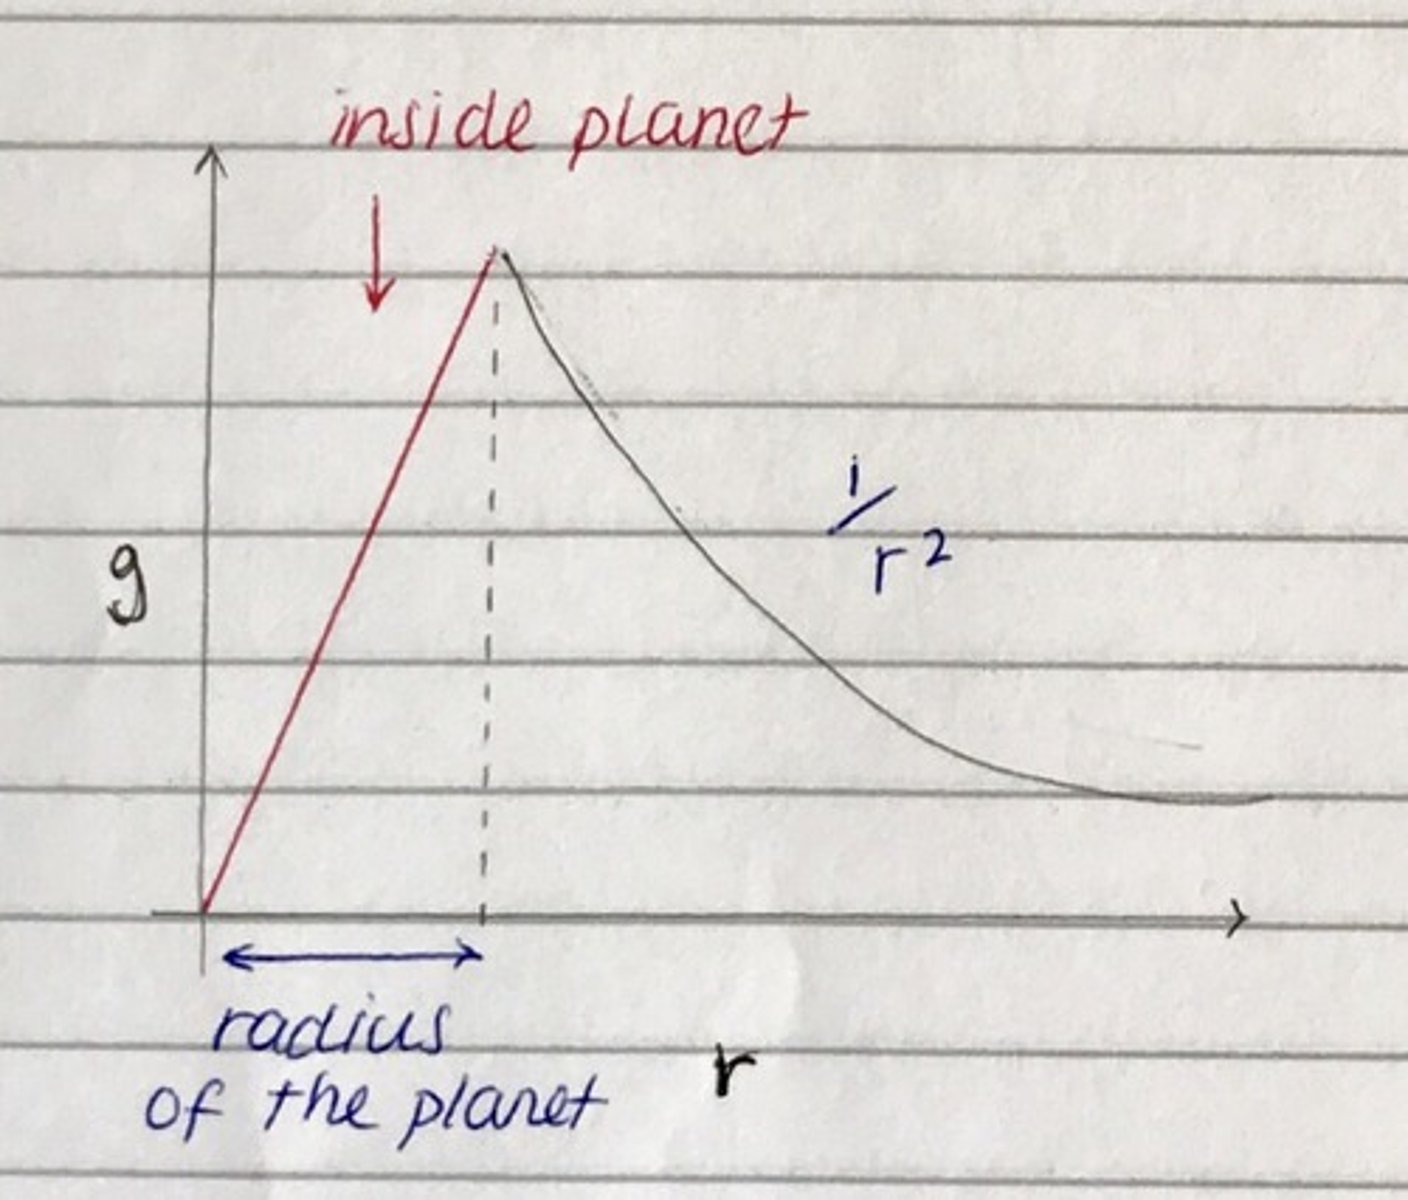 inside planet
g
1/r²
radius
of the planet
r